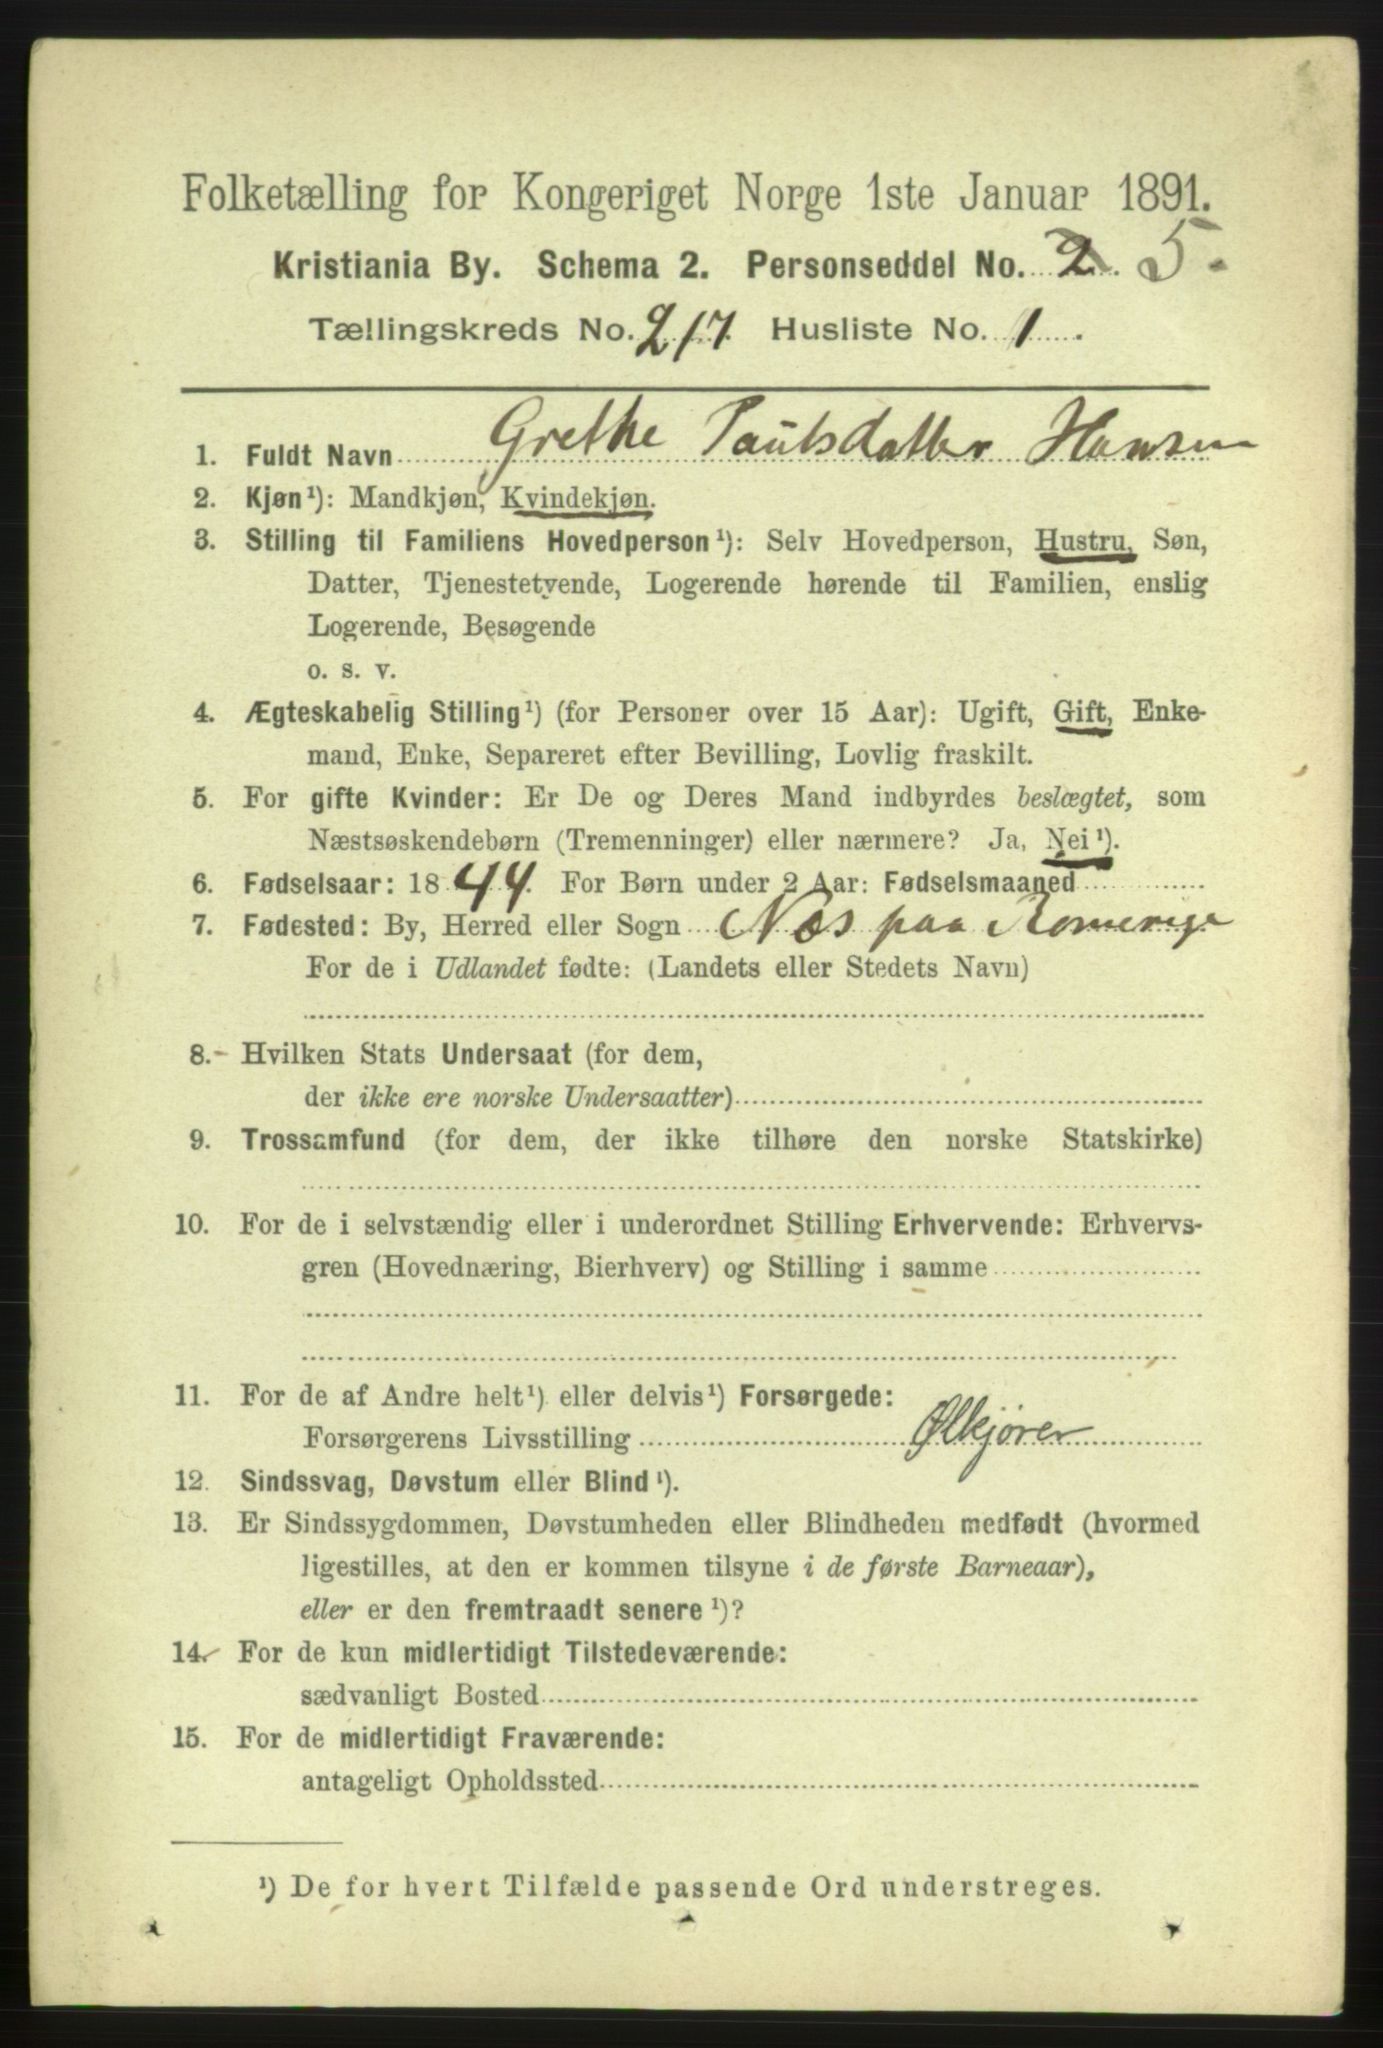 Folketælling for Kongeriget Norge 1ste Januar 1891.
Kristiania By. Schema 2. Personseddel No. 2. 5.
Tællingskreds No. 217. Husliste No. 1.
1. Fuldt Navn Grethe Paulsdatter Hansen
2. Kjøn¹): Mandkjøn, Kvindekjøn.
3. Stilling til Familiens Hovedperson¹): Selv Hovedperson, Hustru, Søn,
Datter, Tjenestetyende, Logerende hørende til Familien, enslig
Logerende, Besøgende
o. s. v.
4. Ægteskabelig Stilling¹) (for Personer over 15 Aar): Ugift, Gift, Enke-
mand, Enke, Separeret efter Bevilling, Lovlig fraskilt.
5. For gifte Kvinder: Er De og Deres Mand indbyrdes beslægtet, som
Næstsøskendebørn (Tremenninger) eller nærmere? Ja, Nei¹).
6. Fødselsaar: 1844. For Børn under 2 Aar: Fødselsmaaned
7. Fødested: By, Herred eller Sogn Næs paa Romerige
For de i Udlandet fødte: (Landets eller Stedets Navn)
8. Hvilken Stats Undersaat (for dem,
der ikke ere norske Undersaatter)
9. Trossamfund (for dem, der ikke tilhøre den norske Statskirke)
10. For de i selvstændig eller i underordnet Stilling Erhvervende: Erhvervs-
gren (Hovednæring, Bierhverv) og Stilling i samme
11. For de af Andre helt¹) eller delvis¹) Forsørgede:
Forsørgerens Livsstilling Ølkjører
12. Sindssvag, Døvstum eller Blind¹).
13. Er Sindssygdommen, Døvstumheden eller Blindheden medfødt (hvormed
ligestilles, at den er kommen tilsyne i de første Barneaar),
eller er den fremtraadt senere¹)?
14. For de kun midlertidigt Tilstedeværende:
sædvanligt Bosted
15. For de midlertidigt Fraværende:
antageligt Opholdssted
¹) De for hvert Tilfælde passende Ord understreges.